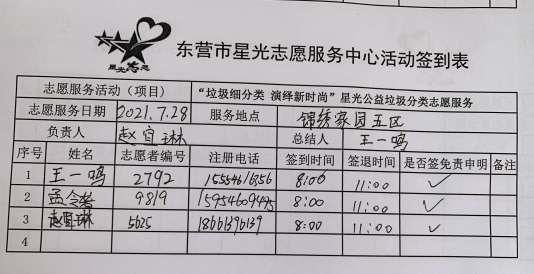 星光志愿
东营市星光志愿服务中心活动签到表
志愿服务活动（项目） “垃圾细分类 演绎新时尚”星光公益垃圾分类志愿服务
志愿服务日期 2021.7.28 服务地点 锦绣家园五区
负责人 赵宜琳 总结人 王一鸣
序号 姓名 志愿者编号 注册电话 签到时间 签退时间 是否签免责申明 备注
1 王一鸣 2792 15554616356 8:00 11:00 ✓
2 孟令 9819 15954609495 8:00 11:00 ✓
3 赵宜琳 5625 18661396139 8:00 11:00 ✓
4